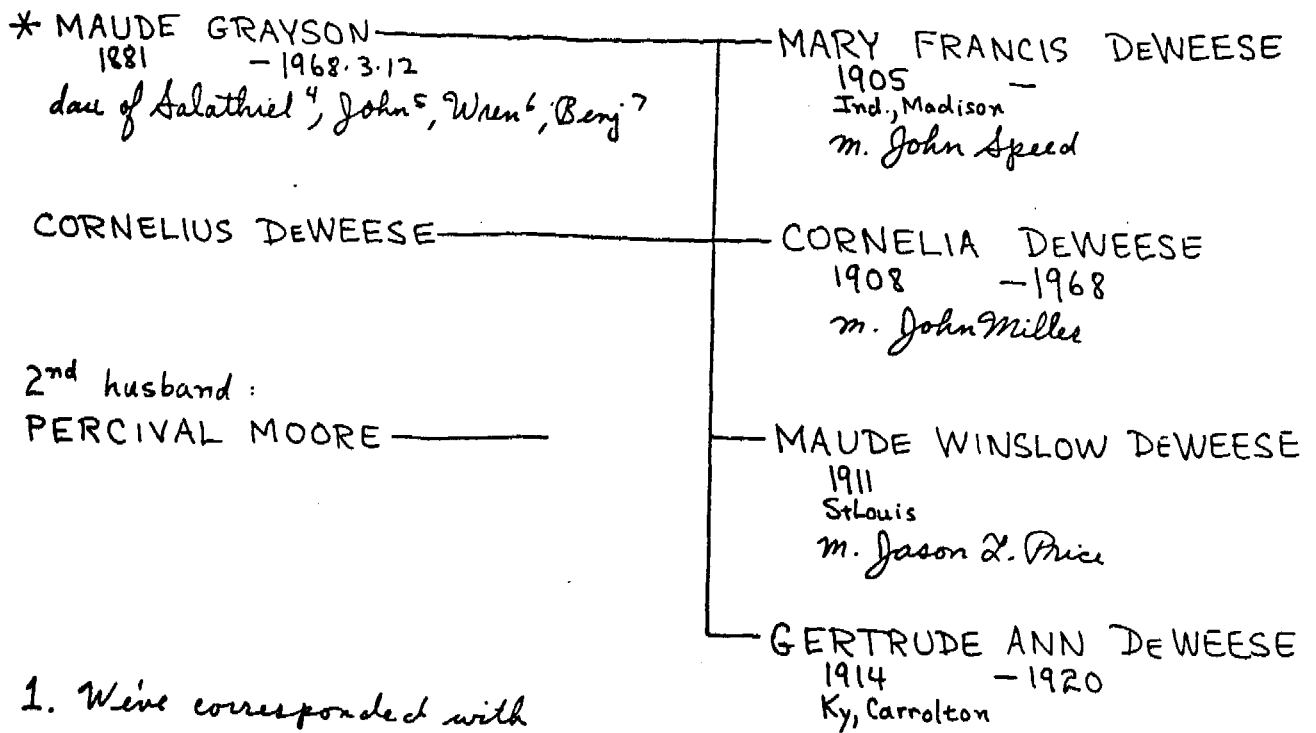 * MAUDE GRAYSON
1881 - 1968.3.12
dau of Salathiel⁴, John⁵, Wren⁶, Benj⁷
CORNELIUS DEWEESE
2nd husband:
PERCIVAL MOORE
1. We've corresponded with
MARY FRANCIS DEWEESE
1905 -
Ind., Madison
m. John Speed
CORNELIA DEWEESE
1908 - 1968
m. John Miller
MAUDE WINSLOW DEWEESE
1911
St Louis
m. Jason L. Price
GERTRUDE ANN DEWEESE
1914 - 1920
Ky, Carrolton